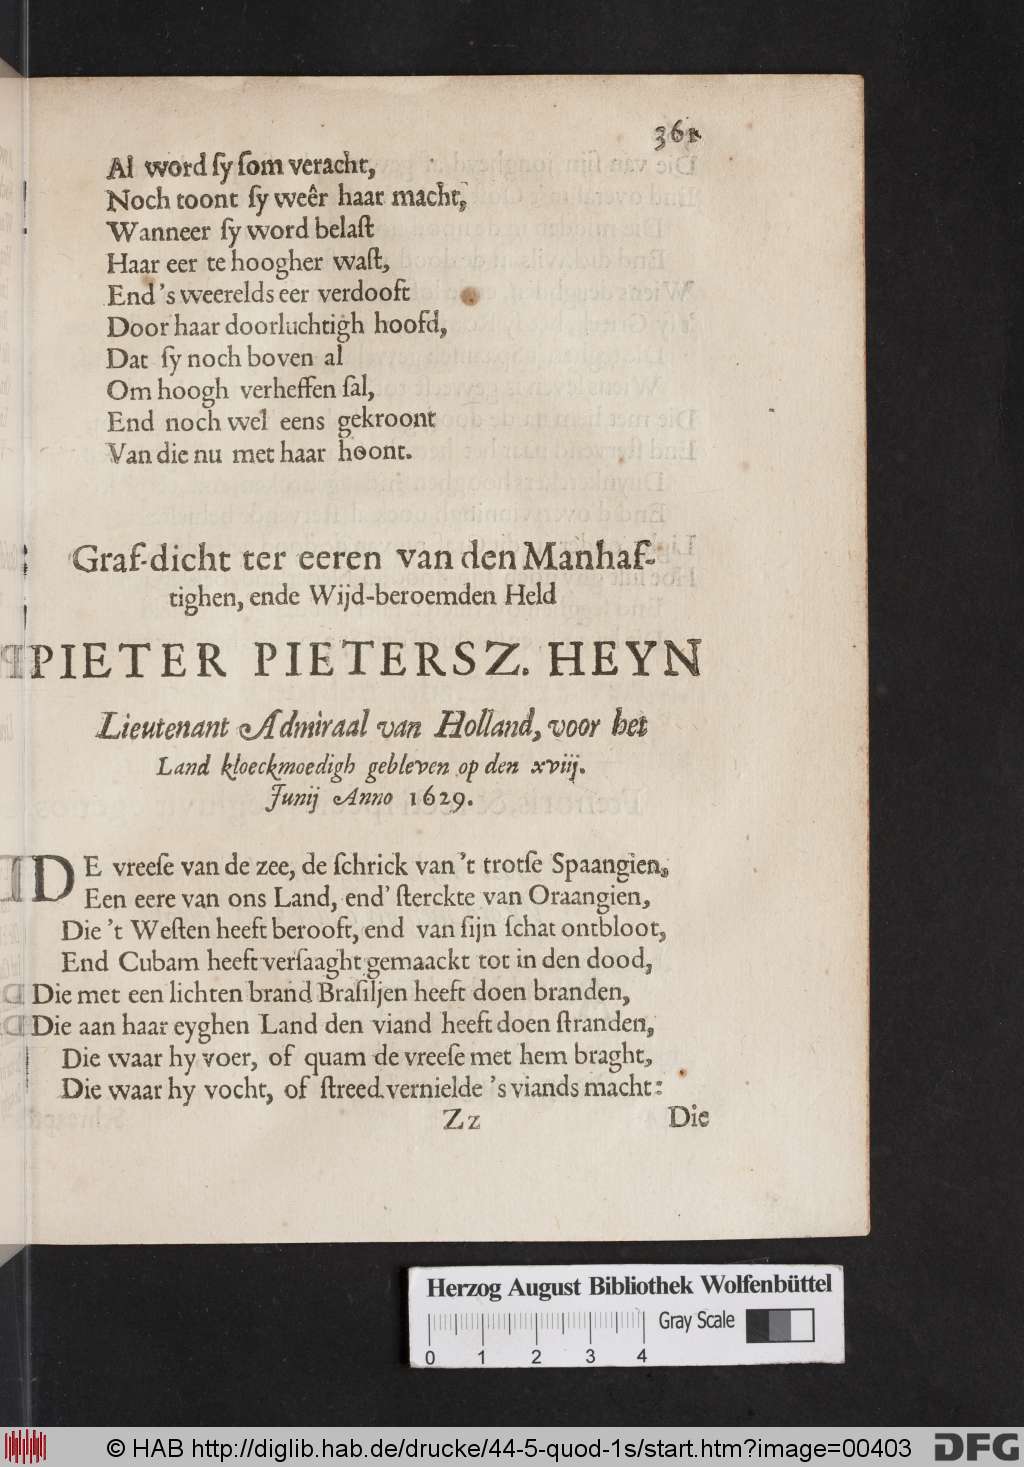 361
Al word ſy ſom veracht,
Noch toont ſy weêr haar macht,
Wanneer ſy word belaſt
Haar eer te hoogher waſt,
End 's weerelds eer verdooft
Door haar doorluchtigh hoofd,
Dat ſy noch boven al
Om hoogh verheffen ſal,
End noch wel eens gekroont
Van die nu met haar hoont.
Graf-dicht ter eeren van den Manhaf-
tighen, ende Wijd-beroemden Held
PIETER PIETERSZ. HEYN
Lieutenant Admiraal van Holland, voor het
Land kloeckmoedigh gebleven op den xviij.
Junij Anno 1629.
DE vreeſe van de zee, de ſchrick van 't trotſe Spaangien,
Een eere van ons Land, end' ſterckte van Oraangien,
Die 't Weſten heeft berooft, end van ſijn ſchat ontbloot,
End Cubam heeft verſaaght gemaackt tot in den dood,
Die met een lichten brand Braſiljen heeft doen branden,
Die aan haar eyghen Land den viand heeft doen ſtranden,
Die waar hy voer, of quam de vreeſe met hem braght,
Die waar hy vocht, of ſtreed vernielde 's viands macht:
Zz Die
Herzog August Bibliothek Wolfenbüttel
Gray Scale
0 1 2 3 4
© HAB http://diglib.hab.de/drucke/44-5-quod-1s/start.htm?image=00403 DFG